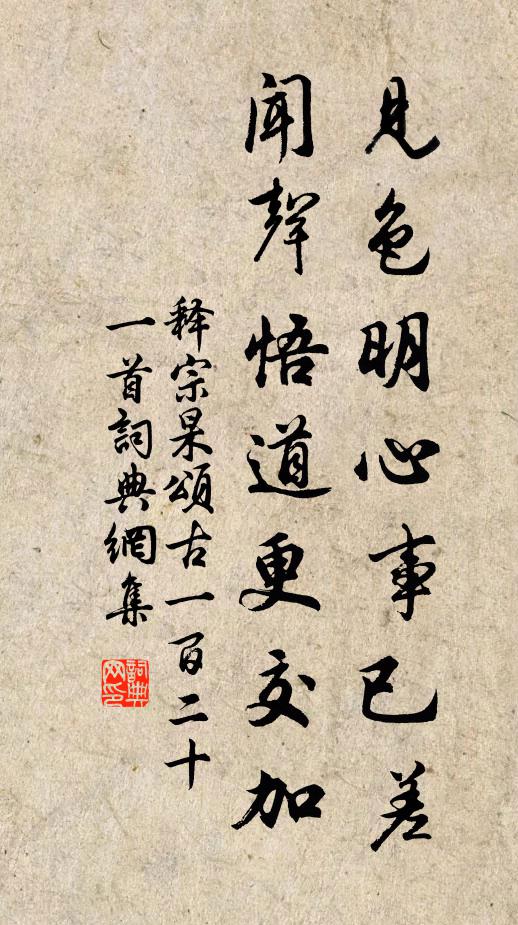 見色明心事已差
聞聲悟道更交加
釋宗杲頌古一百二十
一首詞典網集
詞典網印